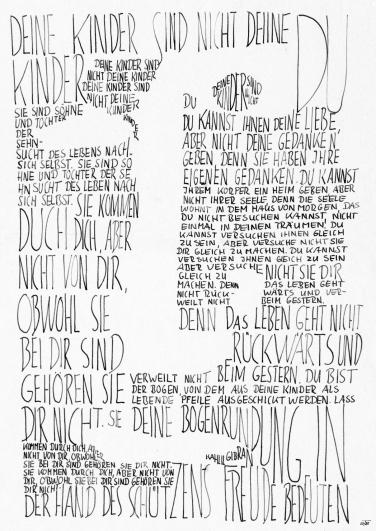 DEINE KINDER SIND NICHT DEINE
KINDER
DEINE KINDER SIND
NICHT DEINE KINDER
DEINE KINDER SIND
NICHT DEINE
KINDER
SIE SIND SÖHNE
UND TÖCHTER
DER
SEHN-
SUCHT DES LEBENS NACH
SICH SELBST. SIE SIND SÖ
HNE UND TÖCHTER DER SE
HN SUCHT DES LEBEN NACH
SICH SELBST. SIE KOMMEN
DURCH DICH, ABER
NICHT VON DIR,
OBWOHL SIE
BEI DIR SIND
GEHÖREN SIE
DIR NICHT. SIE
KOMMEN DURCH DICH, ABER
NICHT VON DIR, OBWOHL
SIE BEI DIR SIND GEHÖREN SIE DIR NICHT.
SIE KOMMEN DURCH DICH, ABER NICHT VON
DIR, OBWOHL SIE BEI DIR SIND GEHÖREN SIE
DIR NICHT
DEINE
KINDER SIND
NICHT
DU
DU
DU KANNST IHNEN DEINE LIEBE,
ABER NICHT DEINE GEDANKEN,
GEBEN, DENN SIE HABEN IHRE
EIGENEN GEDANKEN. DU KANNST
IHREM KÖRPER EIN HEIM GEBEN ABER
NICHT IHRER SEELE DENN DIE SEELE
WOHNT IN DEM HAUS VON MORGEN, DAS
DU NICHT BESUCHEN KANNST, NICHT
EINMAL IN DEINEN TRÄUMEN. DU
KANNST VERSUCHEN IHNEN GLEICH
ZU SEIN, ABER VERSUCHE NICHT SIE
DIR GLEICH ZU MACHEN. DU KANNST
VERSUCHEN IHNEN GLEICH ZU SEIN
ABER VERSUCHE NICHT SIE DIR
GLEICH ZU
MACHEN. DENN DAS LEBEN GEHT
NICHT RÜCK- WÄRTS UND VER-
WEILT NICHT BEIM GESTERN.
DENN DAS LEBEN GEHT NICHT
RÜCKWÄRTS UND
VERWEILT NICHT BEIM GESTERN. DU BIST
DER BOGEN, VON DEM AUS DEINE KINDER ALS
LEBENDE PFEILE AUSGESCHICKT WERDEN. LASS
DEINE BOGENRUNDUNG IN
DER HAND DES SCHÜTZENS FREUDE BEDEUTEN
KAHLIL GIBRAN